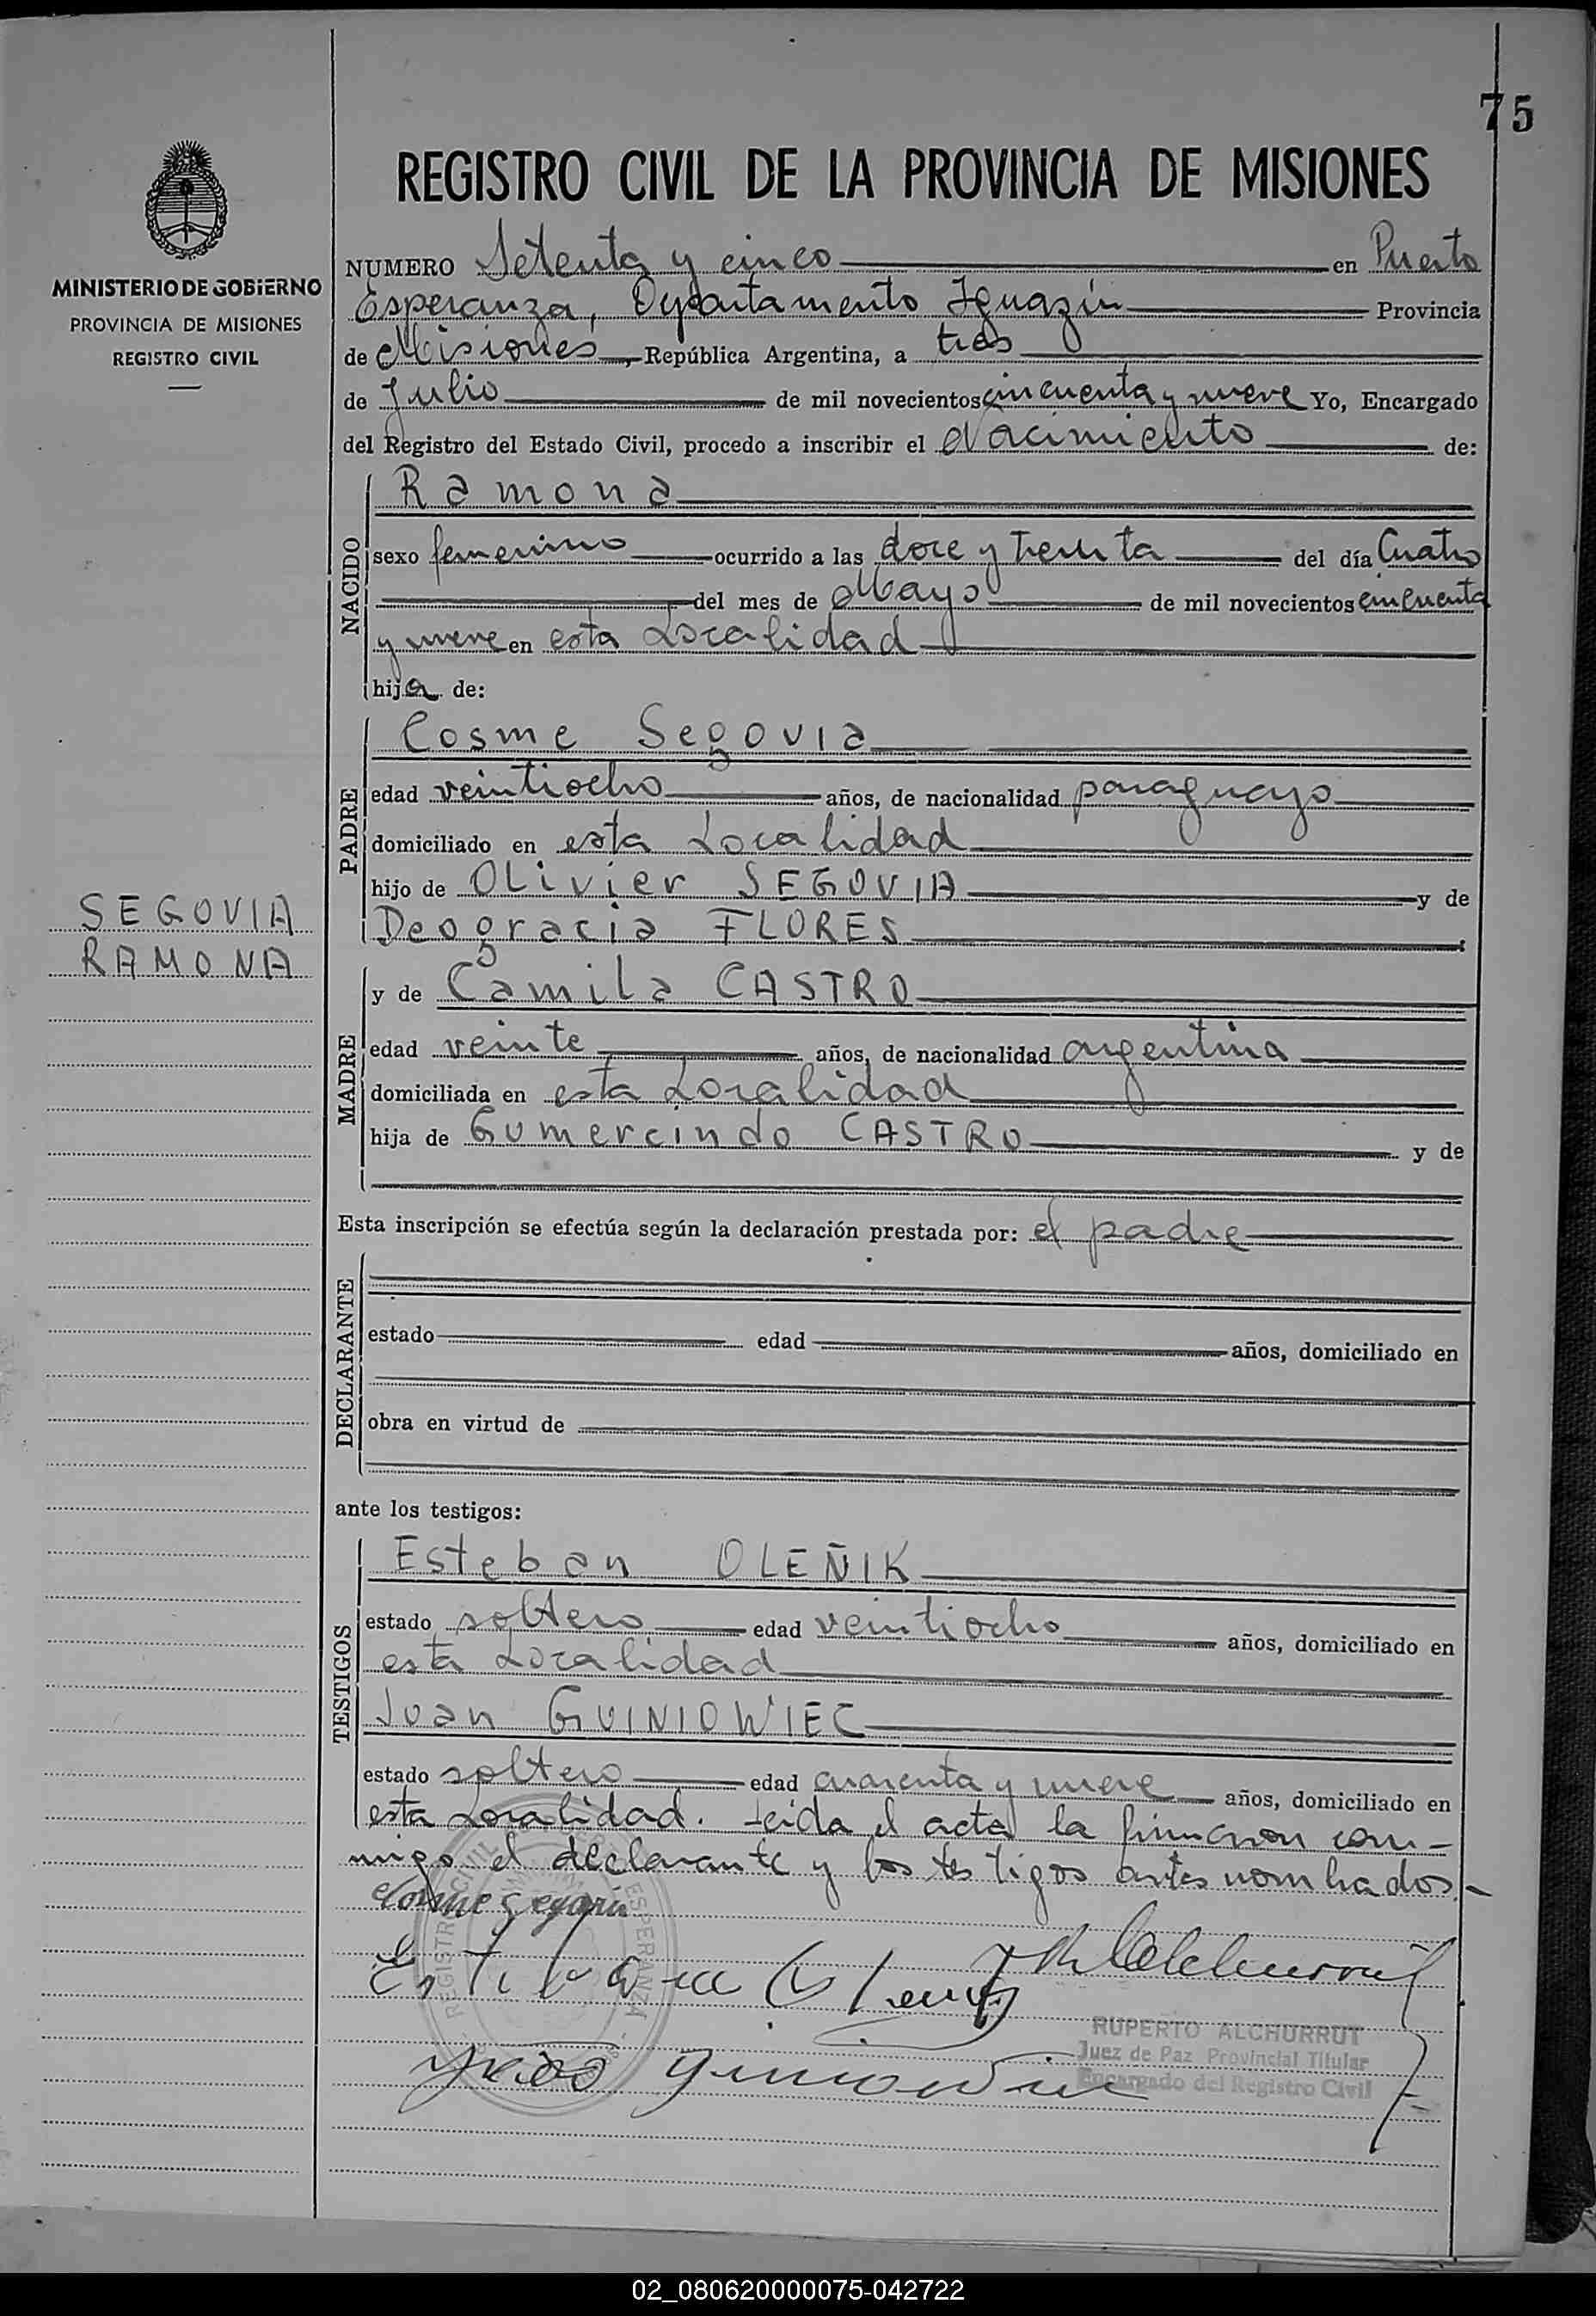 75
REGISTRO CIVIL DE LA PROVINCIA DE MISIONES
MINISTERIO DE GOBIERNO
PROVINCIA DE MISIONES
REGISTRO CIVIL
NUMERO Setenta y cinco en Puerto
Esperanza, Departamento Iguazú Provincia
de Misiones, República Argentina, a tres
de Julio de mil novecientos cincuenta y nueve Yo, Encargado
del Registro del Estado Civil, procedo a inscribir el Nacimiento de:
NACIDO
Ramona
sexo femenino ocurrido a las doce y treinta del día Cuatro
del mes de Mayo de mil novecientos cincuenta
y nueve en esta Localidad
hija de:
PADRE
Cosme Segovia
edad veintiocho años, de nacionalidad paraguayo
domiciliado en esta Localidad
hijo de OLivier SEGOVIA y de
Deogracia FLORES
SEGOVIA
RAMONA
MADRE
y de Camila CASTRO
edad veinte años, de nacionalidad argentina
domiciliada en esta Localidad
hija de Gumercindo CASTRO y de
Esta inscripción se efectúa según la declaración prestada por: el padre
DECLARANTE
estado edad años, domiciliado en
obra en virtud de
ante los testigos:
TESTIGOS
Esteban OLEÑIK
estado soltero edad veintiocho años, domiciliado en
esta Localidad
Juan GUINIOWIEC
estado soltero edad cuarenta y nueve años, domiciliado en
esta Localidad. Leida el acta la firmaron con-
migo el declarante y los testigos antes nombrados.-
Cosme Segovia
RUPERTO ALCHURRUT
Juez de Paz Provincial Titular
Encargado del Registro Civil
02_080620000075-042722